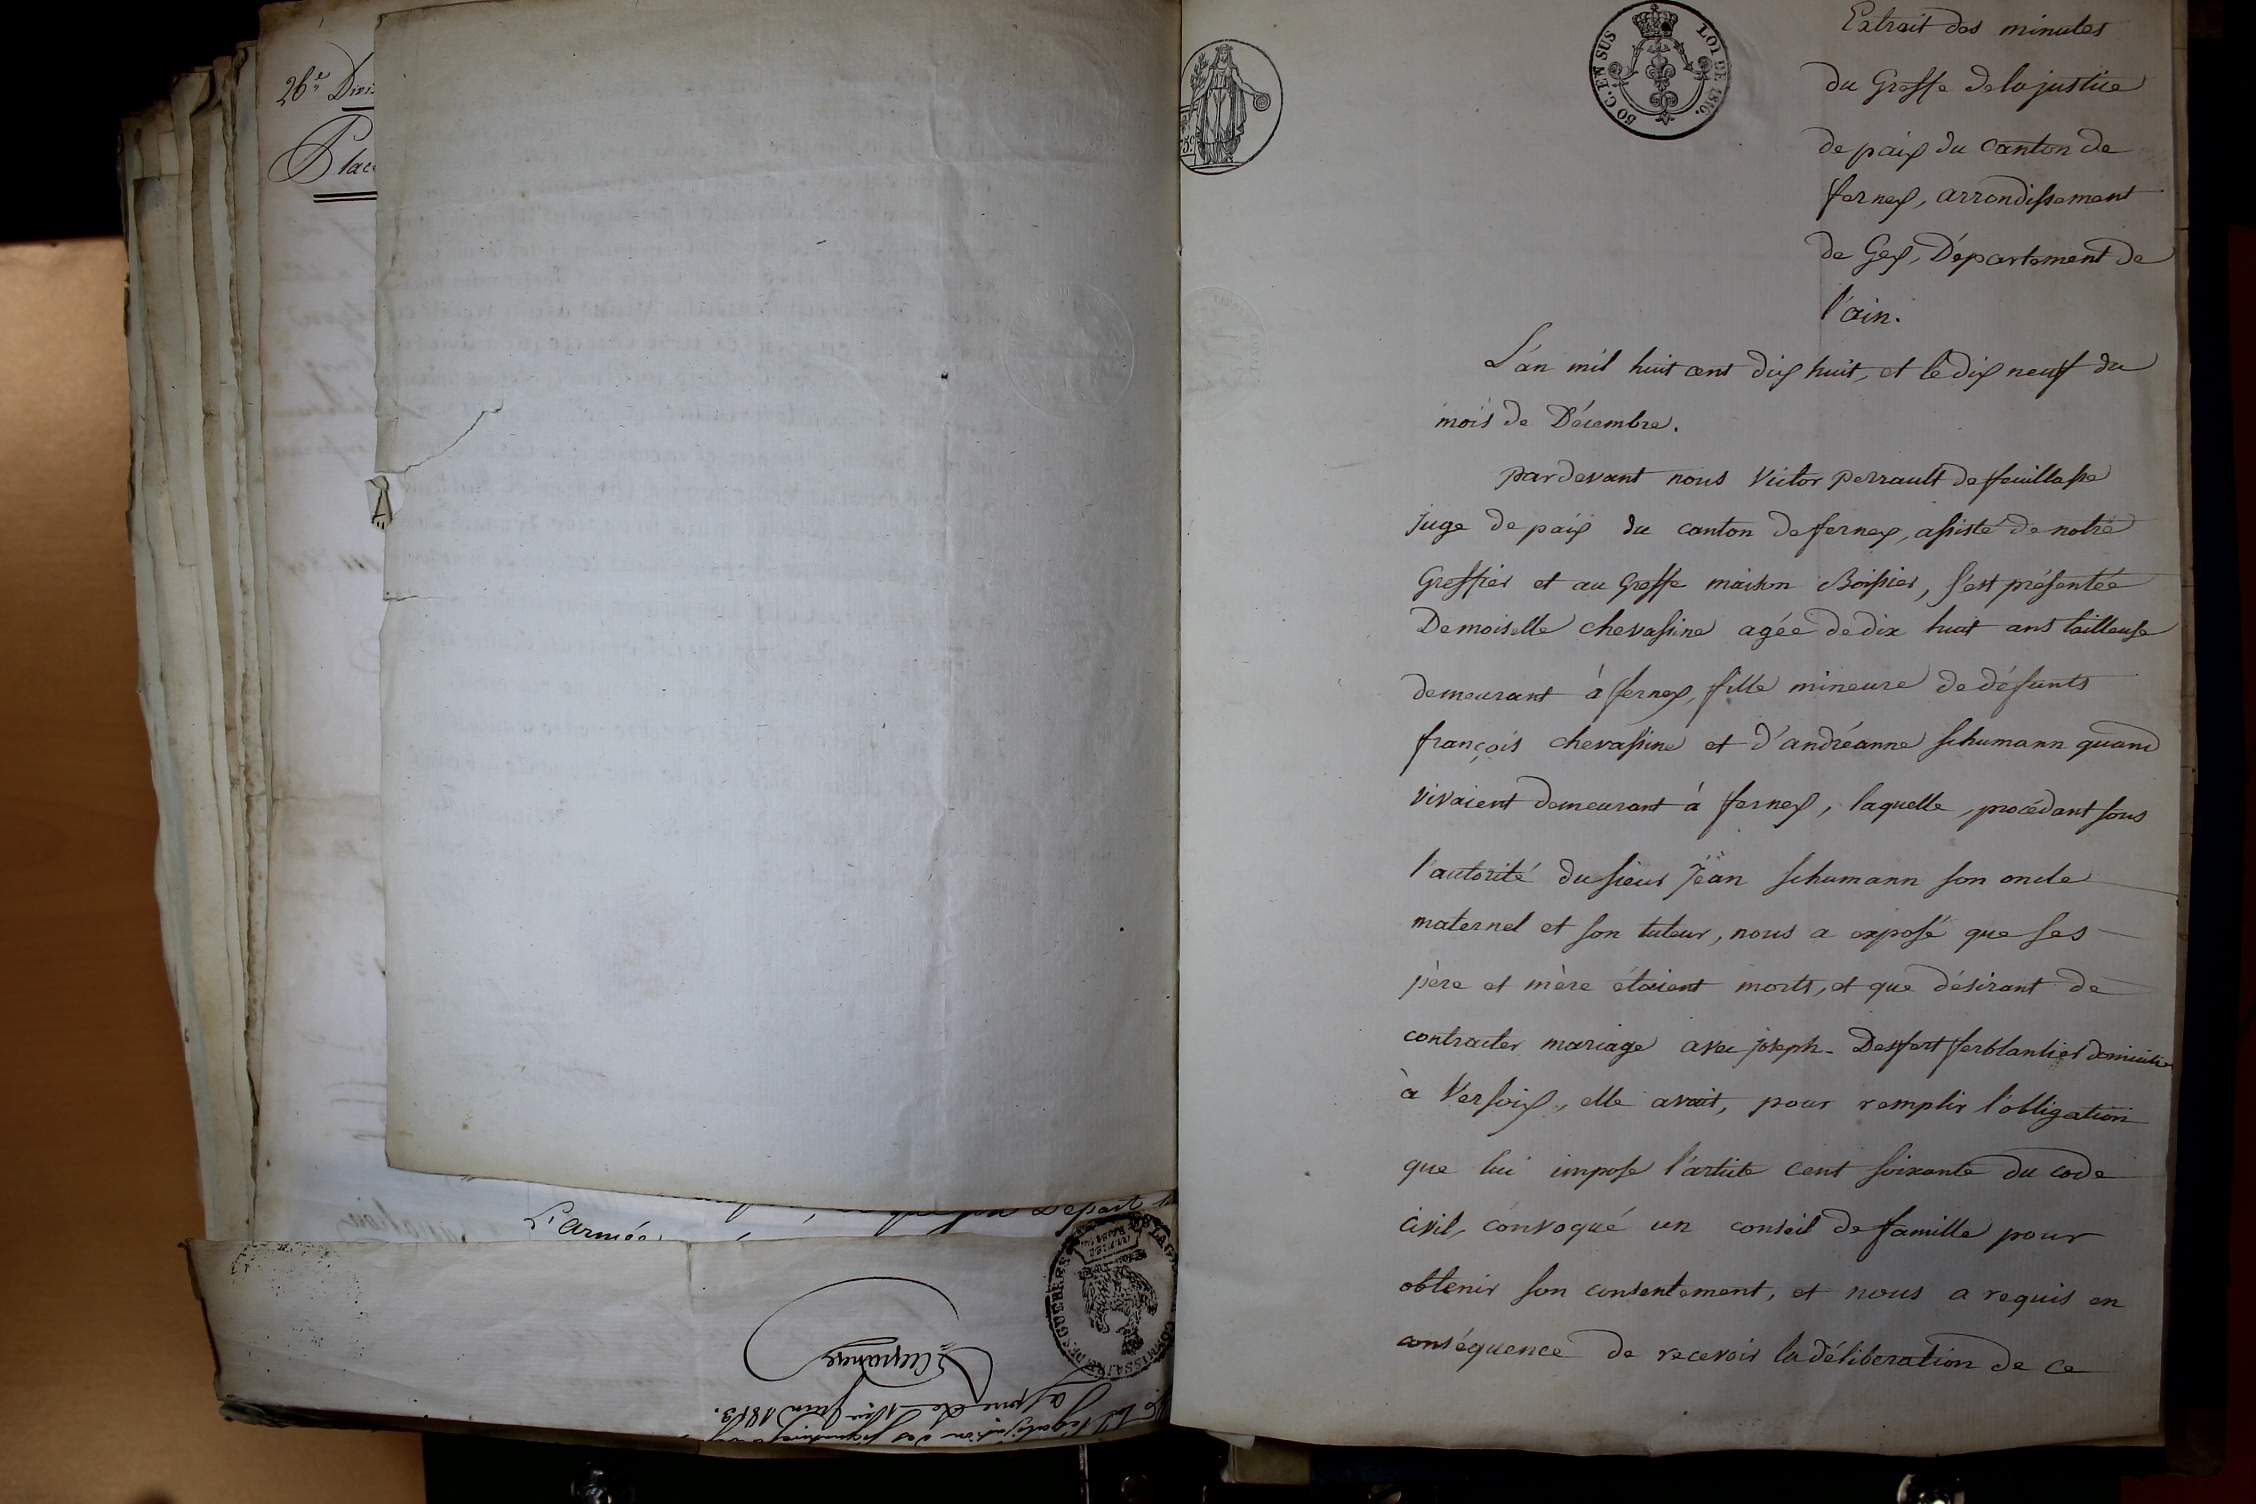 26e Divis
Place
L'armée
COMMISSAIRE DES GUERRES
1813.
50 C. EN SUS
LOI DE 1816.
Extrait des minutes
du Greffe de la justice
de paix du canton de
ferney, arrondissement
de Gex, Département de
l'ain.
L'an mil huit cent dix huit, et le dix neuf du
mois de Décembre.
pardevant nous Victor perrault de feuillasse
juge de paix du canton de ferney, assisté de notre
Greffier et au Greffe maison Boissier, s'est présentée
Demoiselle chevassine agée de dix huit ans tailleuse
demeurant à ferney, fille mineure de défunts
françois chevassine et d'andréanne schumann quand
vivaient demeurant à ferney, laquelle, procédant sous
l'autorité du sieur Jean schumann son oncle
maternel et son tuteur, nous a exposé que ses
père et mère étaient morts, et que désirant de
contracter mariage avec joseph - Desfert ferblantier domicilié
à Versoix, elle avait, pour remplir l'obligation
que lui impose l'article cent soixante du code
civil, convoqué un conseil de famille pour
obtenir son consentement, et nous a requis en
conséquence de recevoir la délibération de ce